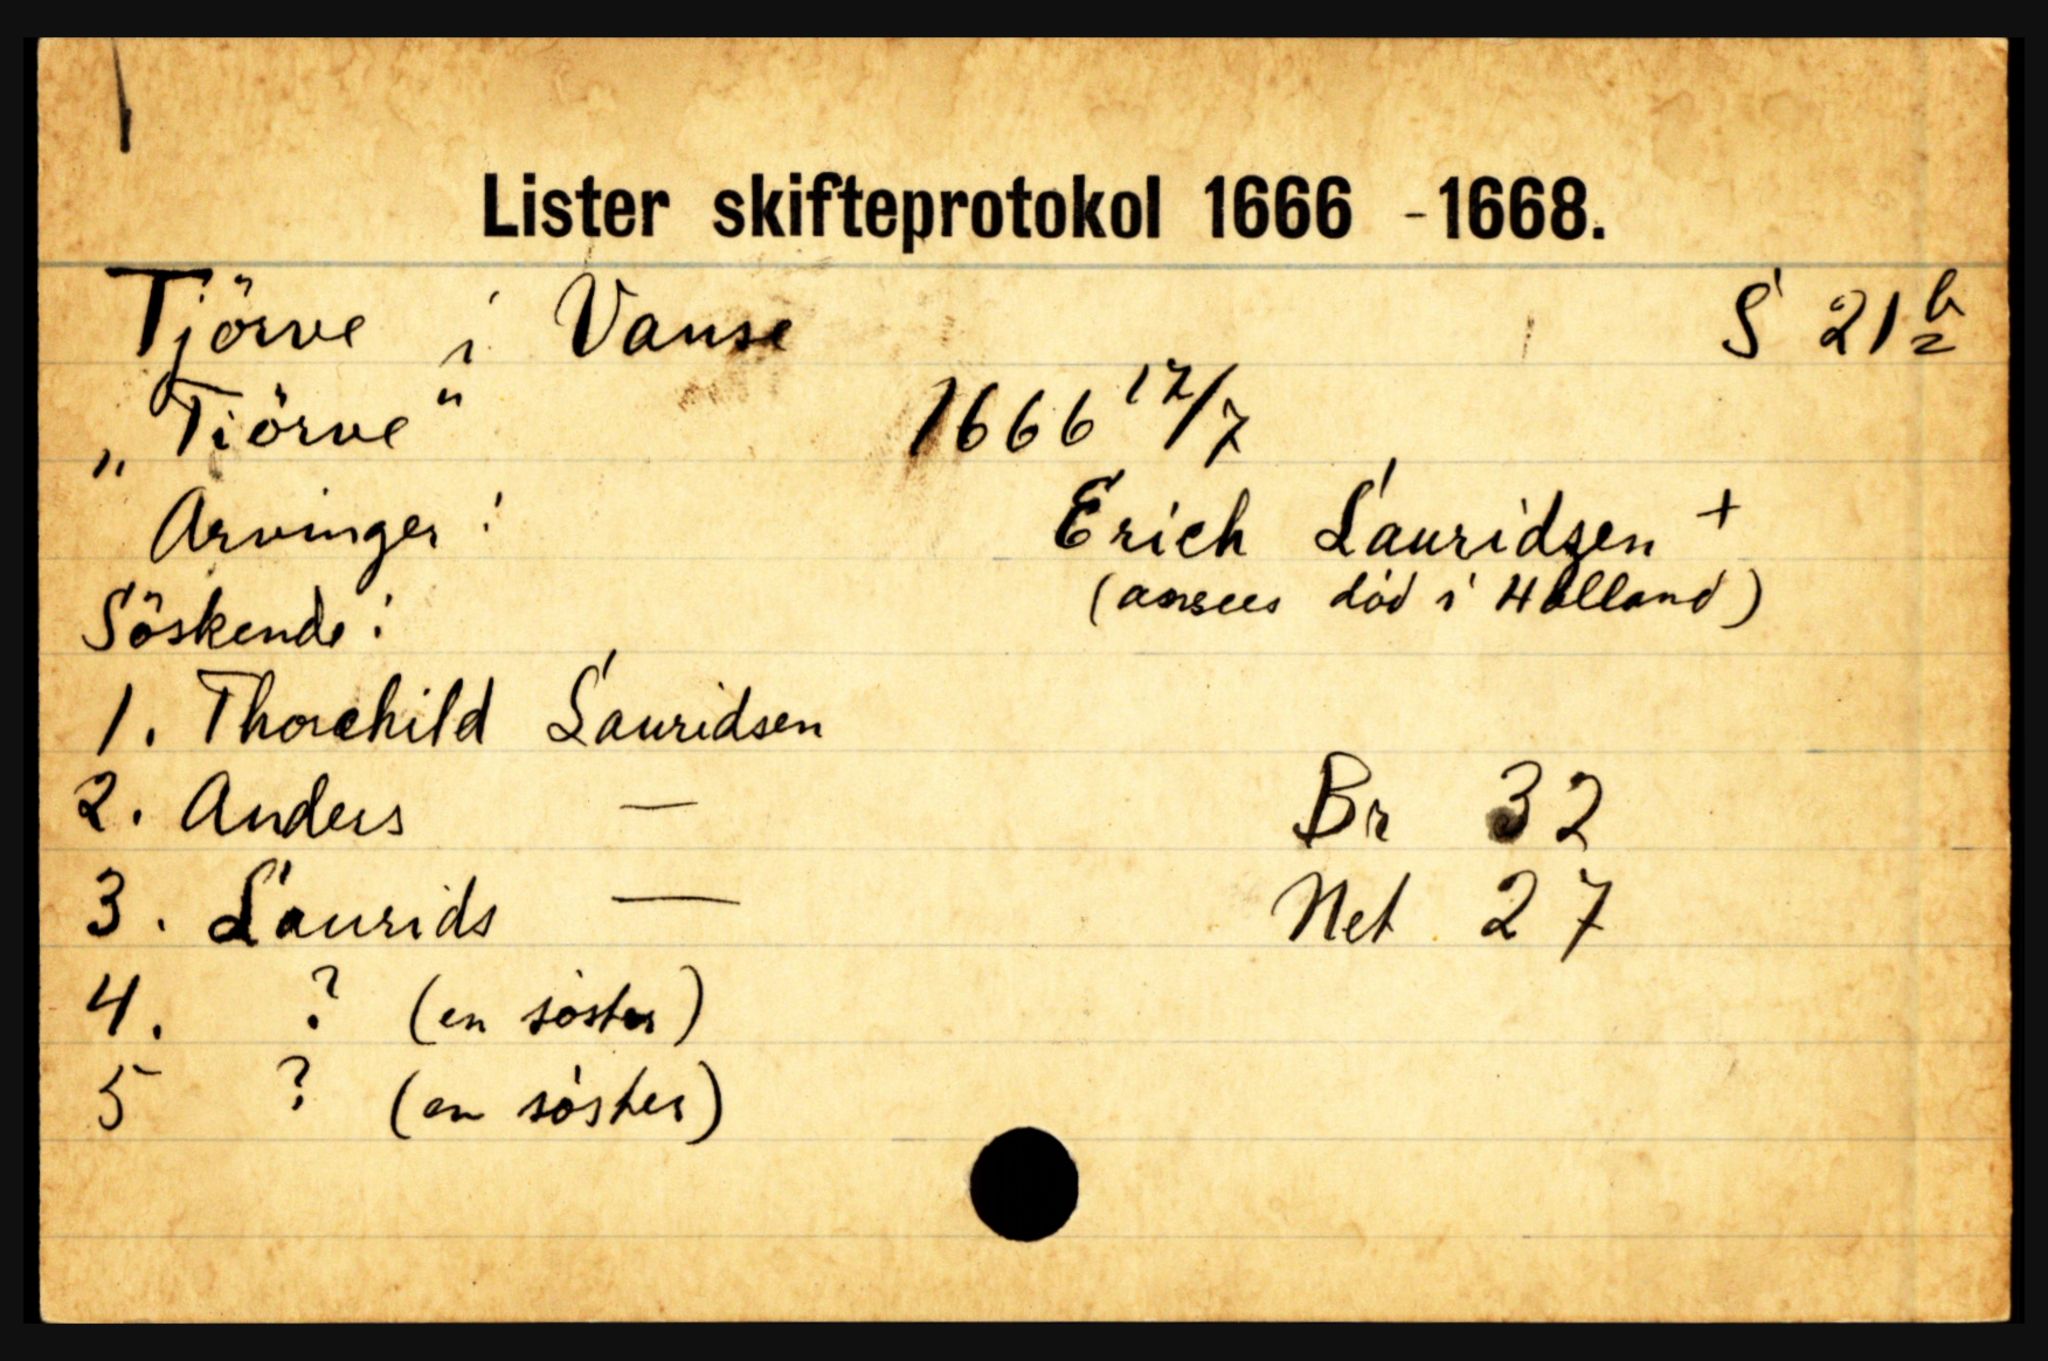 Lister skifteprotokol 1666 - 1668.
Tjörve i Vanse S 21 b
„Tiörve" 1666 17/7
Arvinger: Erich Lauridsen +
(ansees död i Holland)
Söskende:
1. Thorchild Lauridsen
2. Anders — Br 32
3. Laurids — Net 27
4. ? (en söster)
5 ? (en söster)